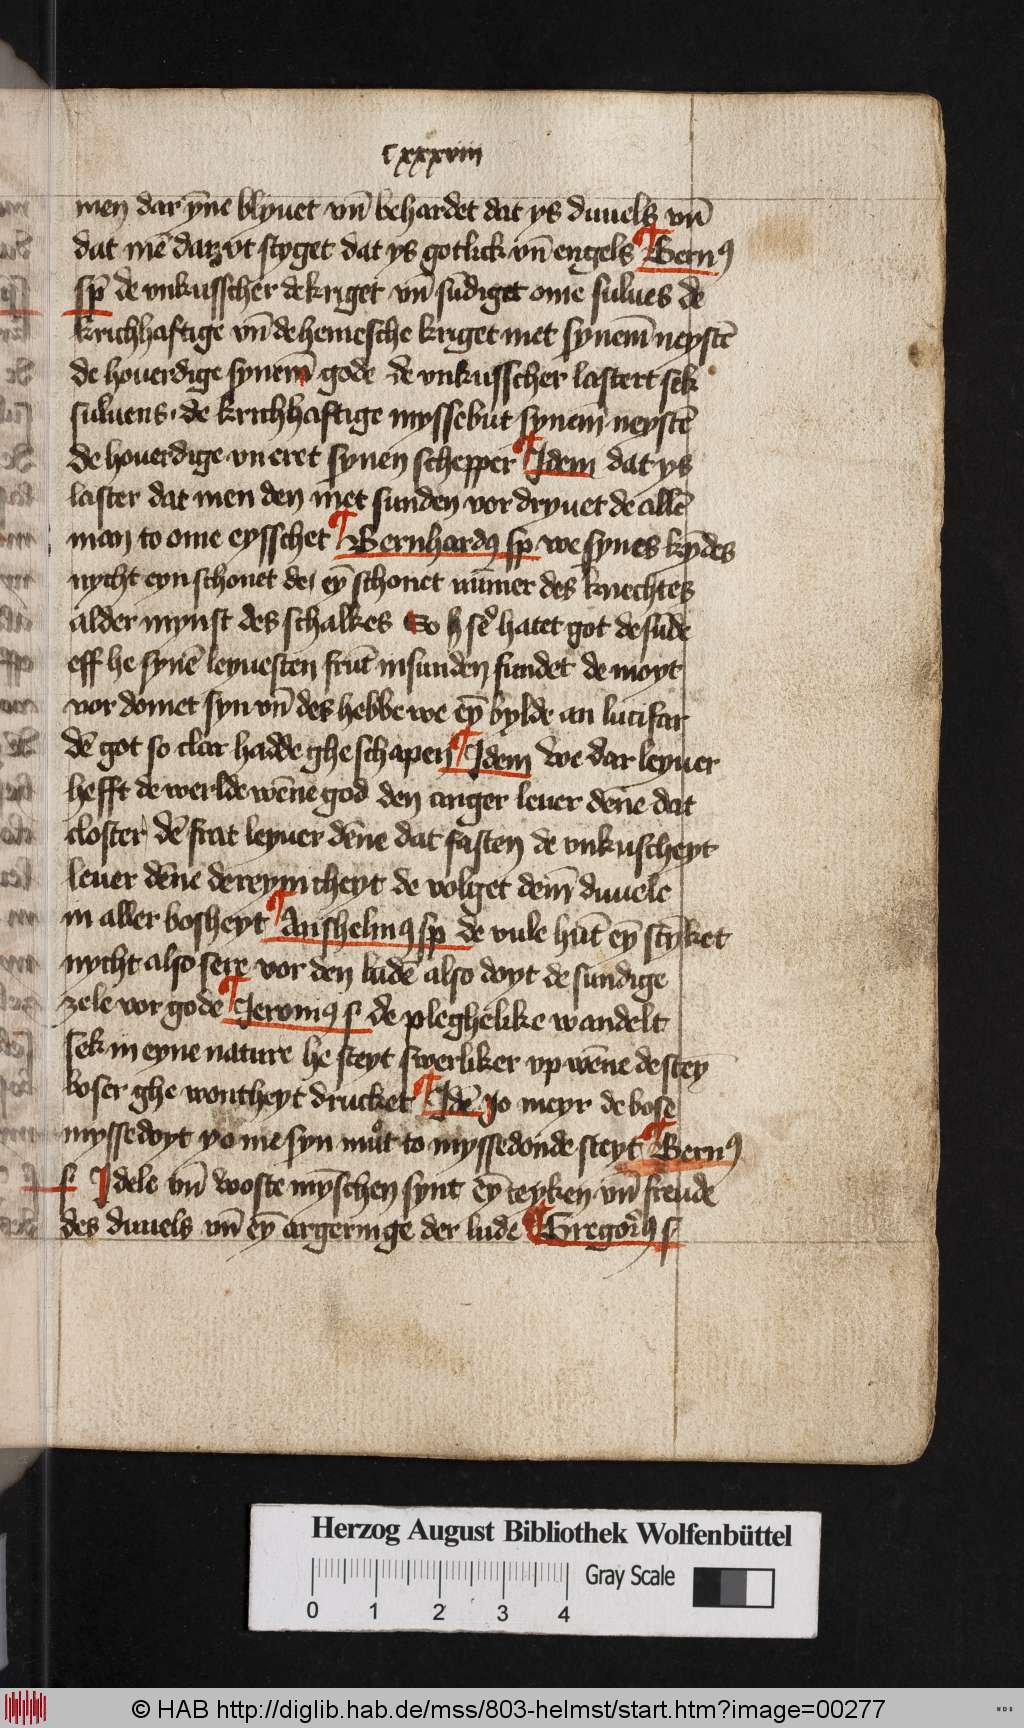 cxxxviii
men dar yn̄e blyuet vn̄ behardet dat ys duuels vn̄
dat mē dar vt styget dat ys gotlick vn̄ engels ¶ Bernꝰ
sp̄ de vnkusscher de kriget vn̄ sūdiget ome sulues de
krichhaftige vn̄ de hemesche kriget met synem̄ neystē
de houerdige synem̄ gode de vnkusscher lastert sek
suluens · de krichhaftige myssebut synem̄ neystē
de houerdige vneret synen schepper ¶ Idem dat ys
laster dat men den met sunden vor dryuet de allē
man to ome eysschet ¶ Bernhardꝰ sp we synes kȳdes
nycht eyn schonet de eȳ schonet nūmer des knechtes
alder mynst des schalkes So hatet got de sūde
eff he synē leyuesten frūt in sunden fundet de moyt
vor domet syn vn̄ des hebbe we eȳ bylde an lucifar
dē got so clar hadde ghe schapen ¶ Idem we dar leyuer
hefft de werlde wēne god den anger leuer dēne dat
closter dē frat leyuer dēne dat fasten de vnkuscheyt
leuer dēne de reynicheyt de volget dem̄ duuele
in aller bosheyt ¶ Anshelmꝰ sp de vule hūt eȳ stȳket
nycht also sere vor den ludē also doyt de sundige
zele vor gode ¶ Jeronimꝰ s de pleghelike wandelt
sek in eyne nature he steyt swerliker vp wēne de stēy
boser ghe wontheyt drucket ¶ Idē Jo meyr de bose
myssedoyt yo me syn muͦt to myssedonde steyt ¶ Bernꝰ
s Idele vn̄ woste mȳschen synt eȳ teyken vn̄ freude
des duuels vn̄ eȳ argeringe der lude ¶ Gregoriꝰ s
Herzog August Bibliothek Wolfenbüttel
Gray Scale
0 1 2 3 4
© HAB http://diglib.hab.de/mss/803-helmst/start.htm?image=00277